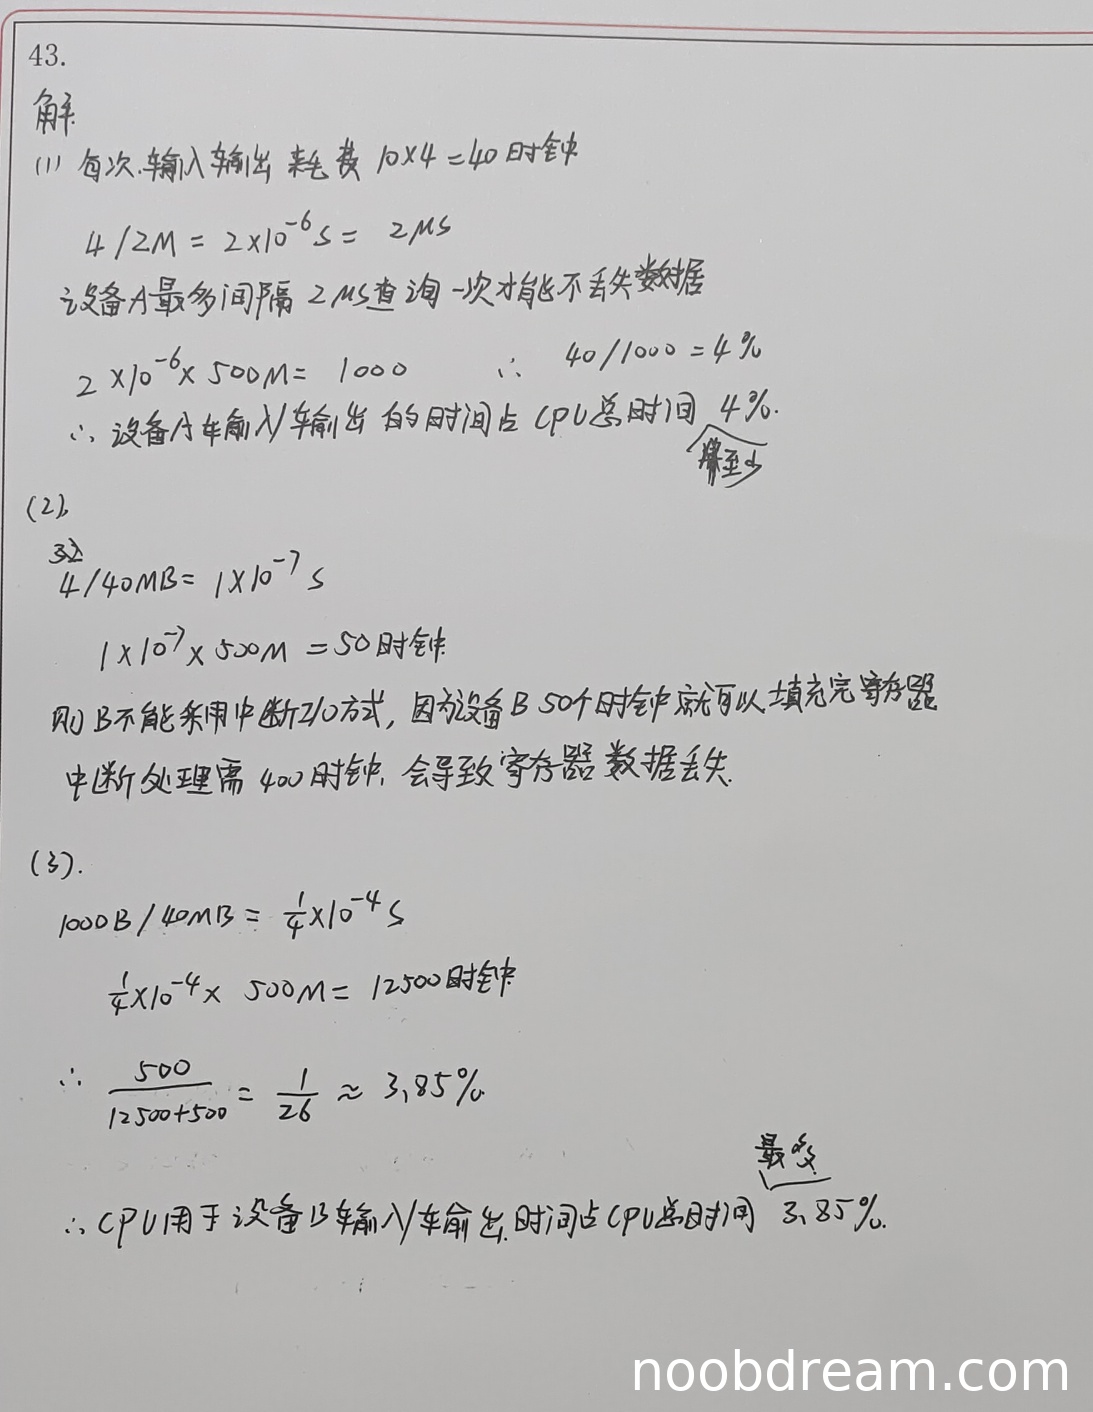 43.
解
(1) 每次输入输出 耗费 10×4=40时钟
4/2M = 2×10⁻⁶s = 2μs
设备A最多间隔 2μs查询一次才能不丢失数据
2×10⁻⁶×500M = 1000 ∴ 40/1000 = 4%
∴ 设备A输入/输出的时间占CPU总时间 4%.
至少
(2).
4/40MB = 1×10⁻⁷ s
1×10⁻⁷×500M = 50时钟
则B不能采用中断I/O方式, 因为设备B 50个时钟就可以填充完寄存器
中断处理需 400时钟, 会导致寄存器数据丢失.
(3).
1000B/40MB = 1/4×10⁻⁴ s
1/4×10⁻⁴× 500M = 12500时钟
∴ 500/(12500+500) = 1/26 ≈ 3.85%.
最多
∴ CPU用于设备B输入/输出时间占CPU总时间 3.85%.
noobdream.com